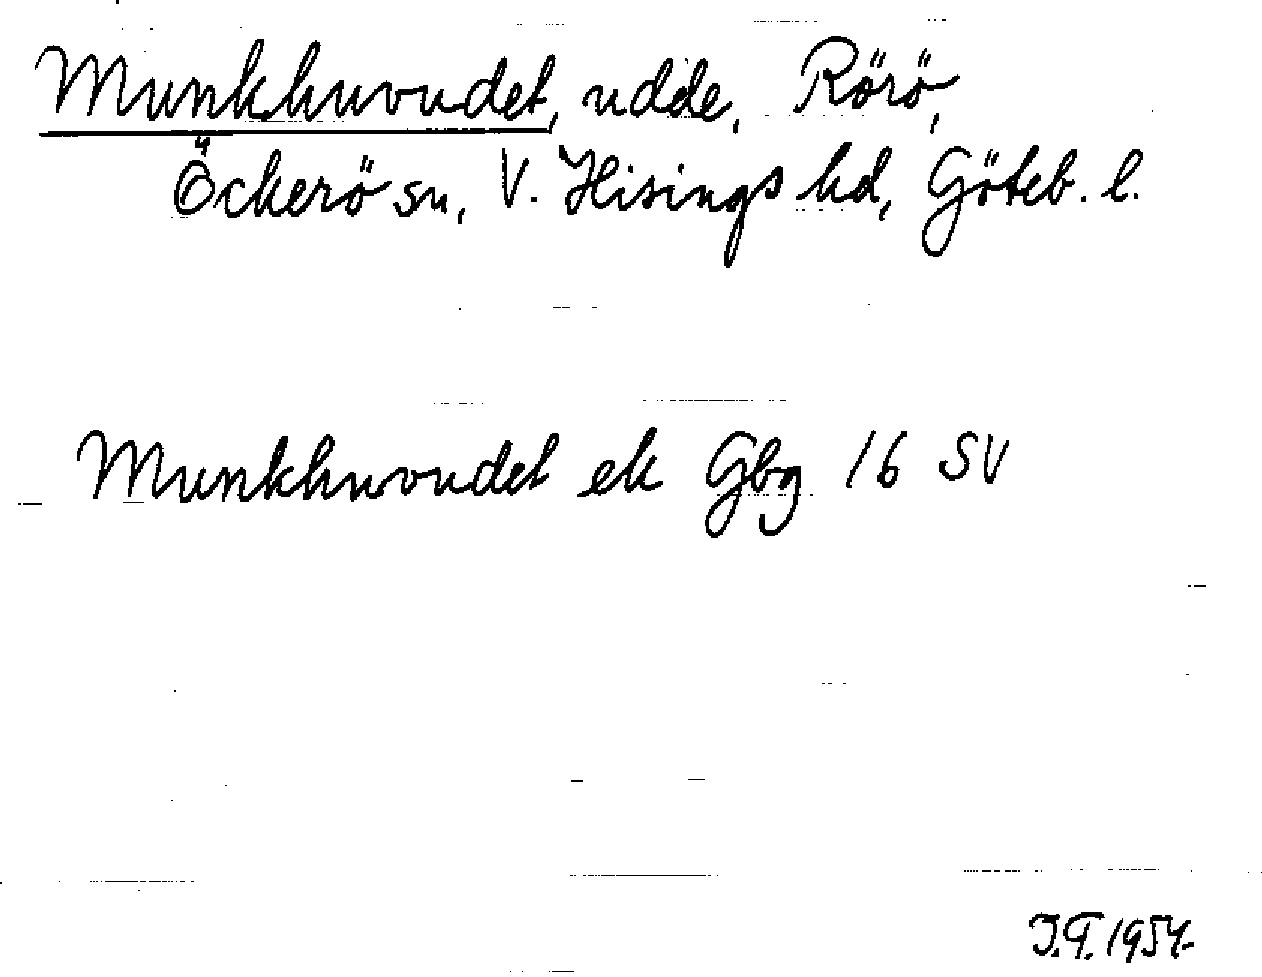 Munkhuvudet, udde, Rörö,
Öckerö sn, V. Hisings hd, Göteb. l.
Munkhuvudet ek Gbg 16 SV
J.T. 1954.